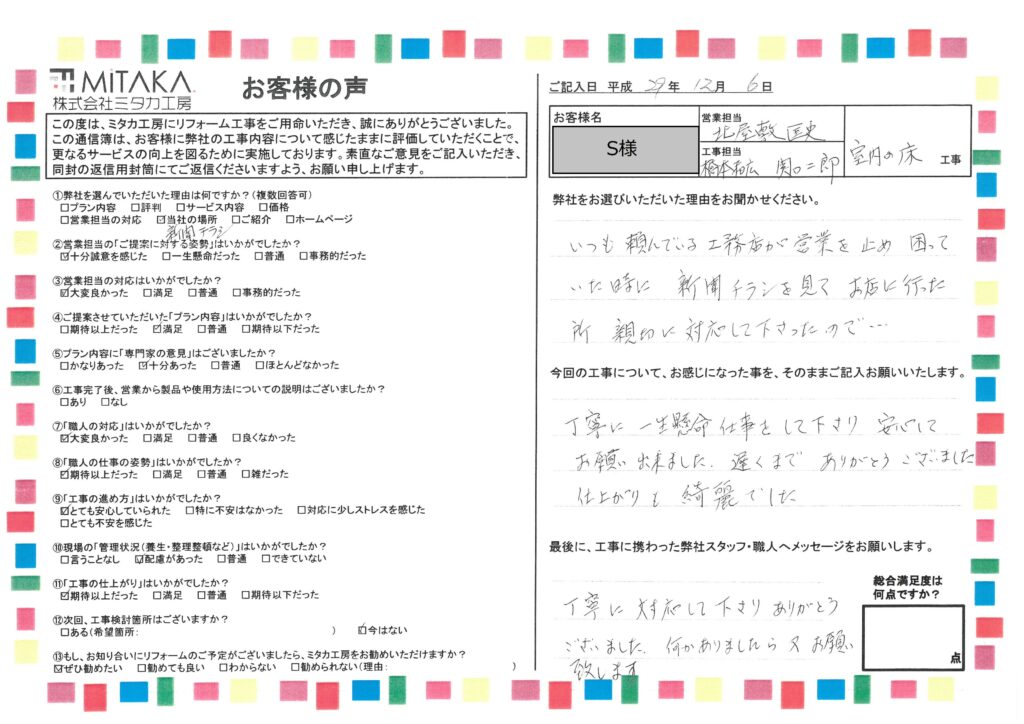 MiTAKA
株式会社ミタカ工房
お客様の声
この度は、ミタカ工房にリフォーム工事をご用命いただき、誠にありがとうございました。
この通信簿は、お客様に弊社の工事内容について感じたままに評価していただくことで、
更なるサービスの向上を図るために実施しております。素直なご意見をご記入いただき、
同封の返信用封筒にてご返信くださいますよう、お願い申し上げます。
①弊社を選んでいただいた理由は何ですか?(複数回答可)
□プラン内容 □評判 □サービス内容 □価格
□営業担当の対応 ☑当社の場所 □ご紹介 □ホームページ
新聞チラシ
②営業担当の「ご提案に対する姿勢」はいかがでしたか?
☑十分誠意を感じた □一生懸命だった □普通 □事務的だった
③営業担当の対応はいかがでしたか?
☑大変良かった □満足 □普通 □事務的だった
④ご提案させていただいた「プラン内容」はいかがでしたか?
□期待以上だった ☑満足 □普通 □期待以下だった
⑤プラン内容に「専門家の意見」はございましたか?
□かなりあった ☑十分あった □普通 □ほとんどなかった
⑥工事完了後、営業から製品や使用方法についての説明はございましたか?
□あり □なし
⑦「職人の対応」はいかがでしたか?
☑大変良かった □満足 □普通 □良くなかった
⑧「職人の仕事の姿勢」はいかがでしたか?
☑期待以上だった □満足 □普通 □雑だった
⑨「工事の進め方」はいかがでしたか?
☑とても安心していられた □特に不安はなかった □対応に少しストレスを感じた
□とても不安を感じた
⑩現場の「管理状況(養生・整理整頓など)」はいかがでしたか?
□言うことなし ☑配慮があった □普通 □できていない
⑪「工事の仕上がり」はいかがでしたか?
☑期待以上だった □満足 □普通 □期待以下だった
⑫次回、工事検討箇所はございますか?
□ある(希望箇所: ) ☑今はない
⑬もし、お知り合いにリフォームのご予定がございましたら、ミタカ工房をお勧めいただけますか?
☑ぜひ勧めたい □勧めても良い □わからない □勧められない(理由: )
ご記入日 平成 29年 12月 6日
お客様名
S様
営業担当
北屋敷 匡史
工事担当
橋本拓広 関口二郎
室内の床 工事
弊社をお選びいただいた理由をお聞かせください。
いつも頼んでいる工務店が営業を止め 困って
いた時に 新聞チラシを見て お店に行った
所 親切に対応して下さったので…
今回の工事について、お感じになった事を、そのままご記入お願いいたします。
丁寧に一生懸命仕事をして下さり 安心して
お願い出来ました. 遅くまで ありがとうございました
仕上がりも 綺麗でした
最後に、工事に携わった弊社スタッフ・職人へメッセージをお願いします。
丁寧に対応して下さり ありがとう
ございました. 何かありましたら又お願い
致します
総合満足度は
何点ですか?
点